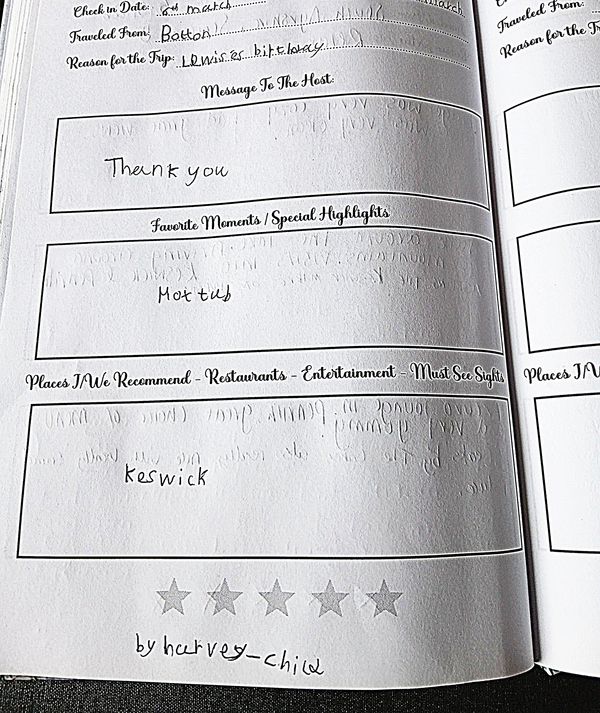 Check in Date: 8th march
Traveled From: Bolton
Reason for the Trip: Lewis'es birthday
Message To The Host:
Thank you
Favorite Moments / Special Highlights
Hot tub
Places I/We Recommend - Restaurants - Entertainment - Must See Sights
Keswick
by harvey-child
Traveled From:
Reason for the T
Places I/W